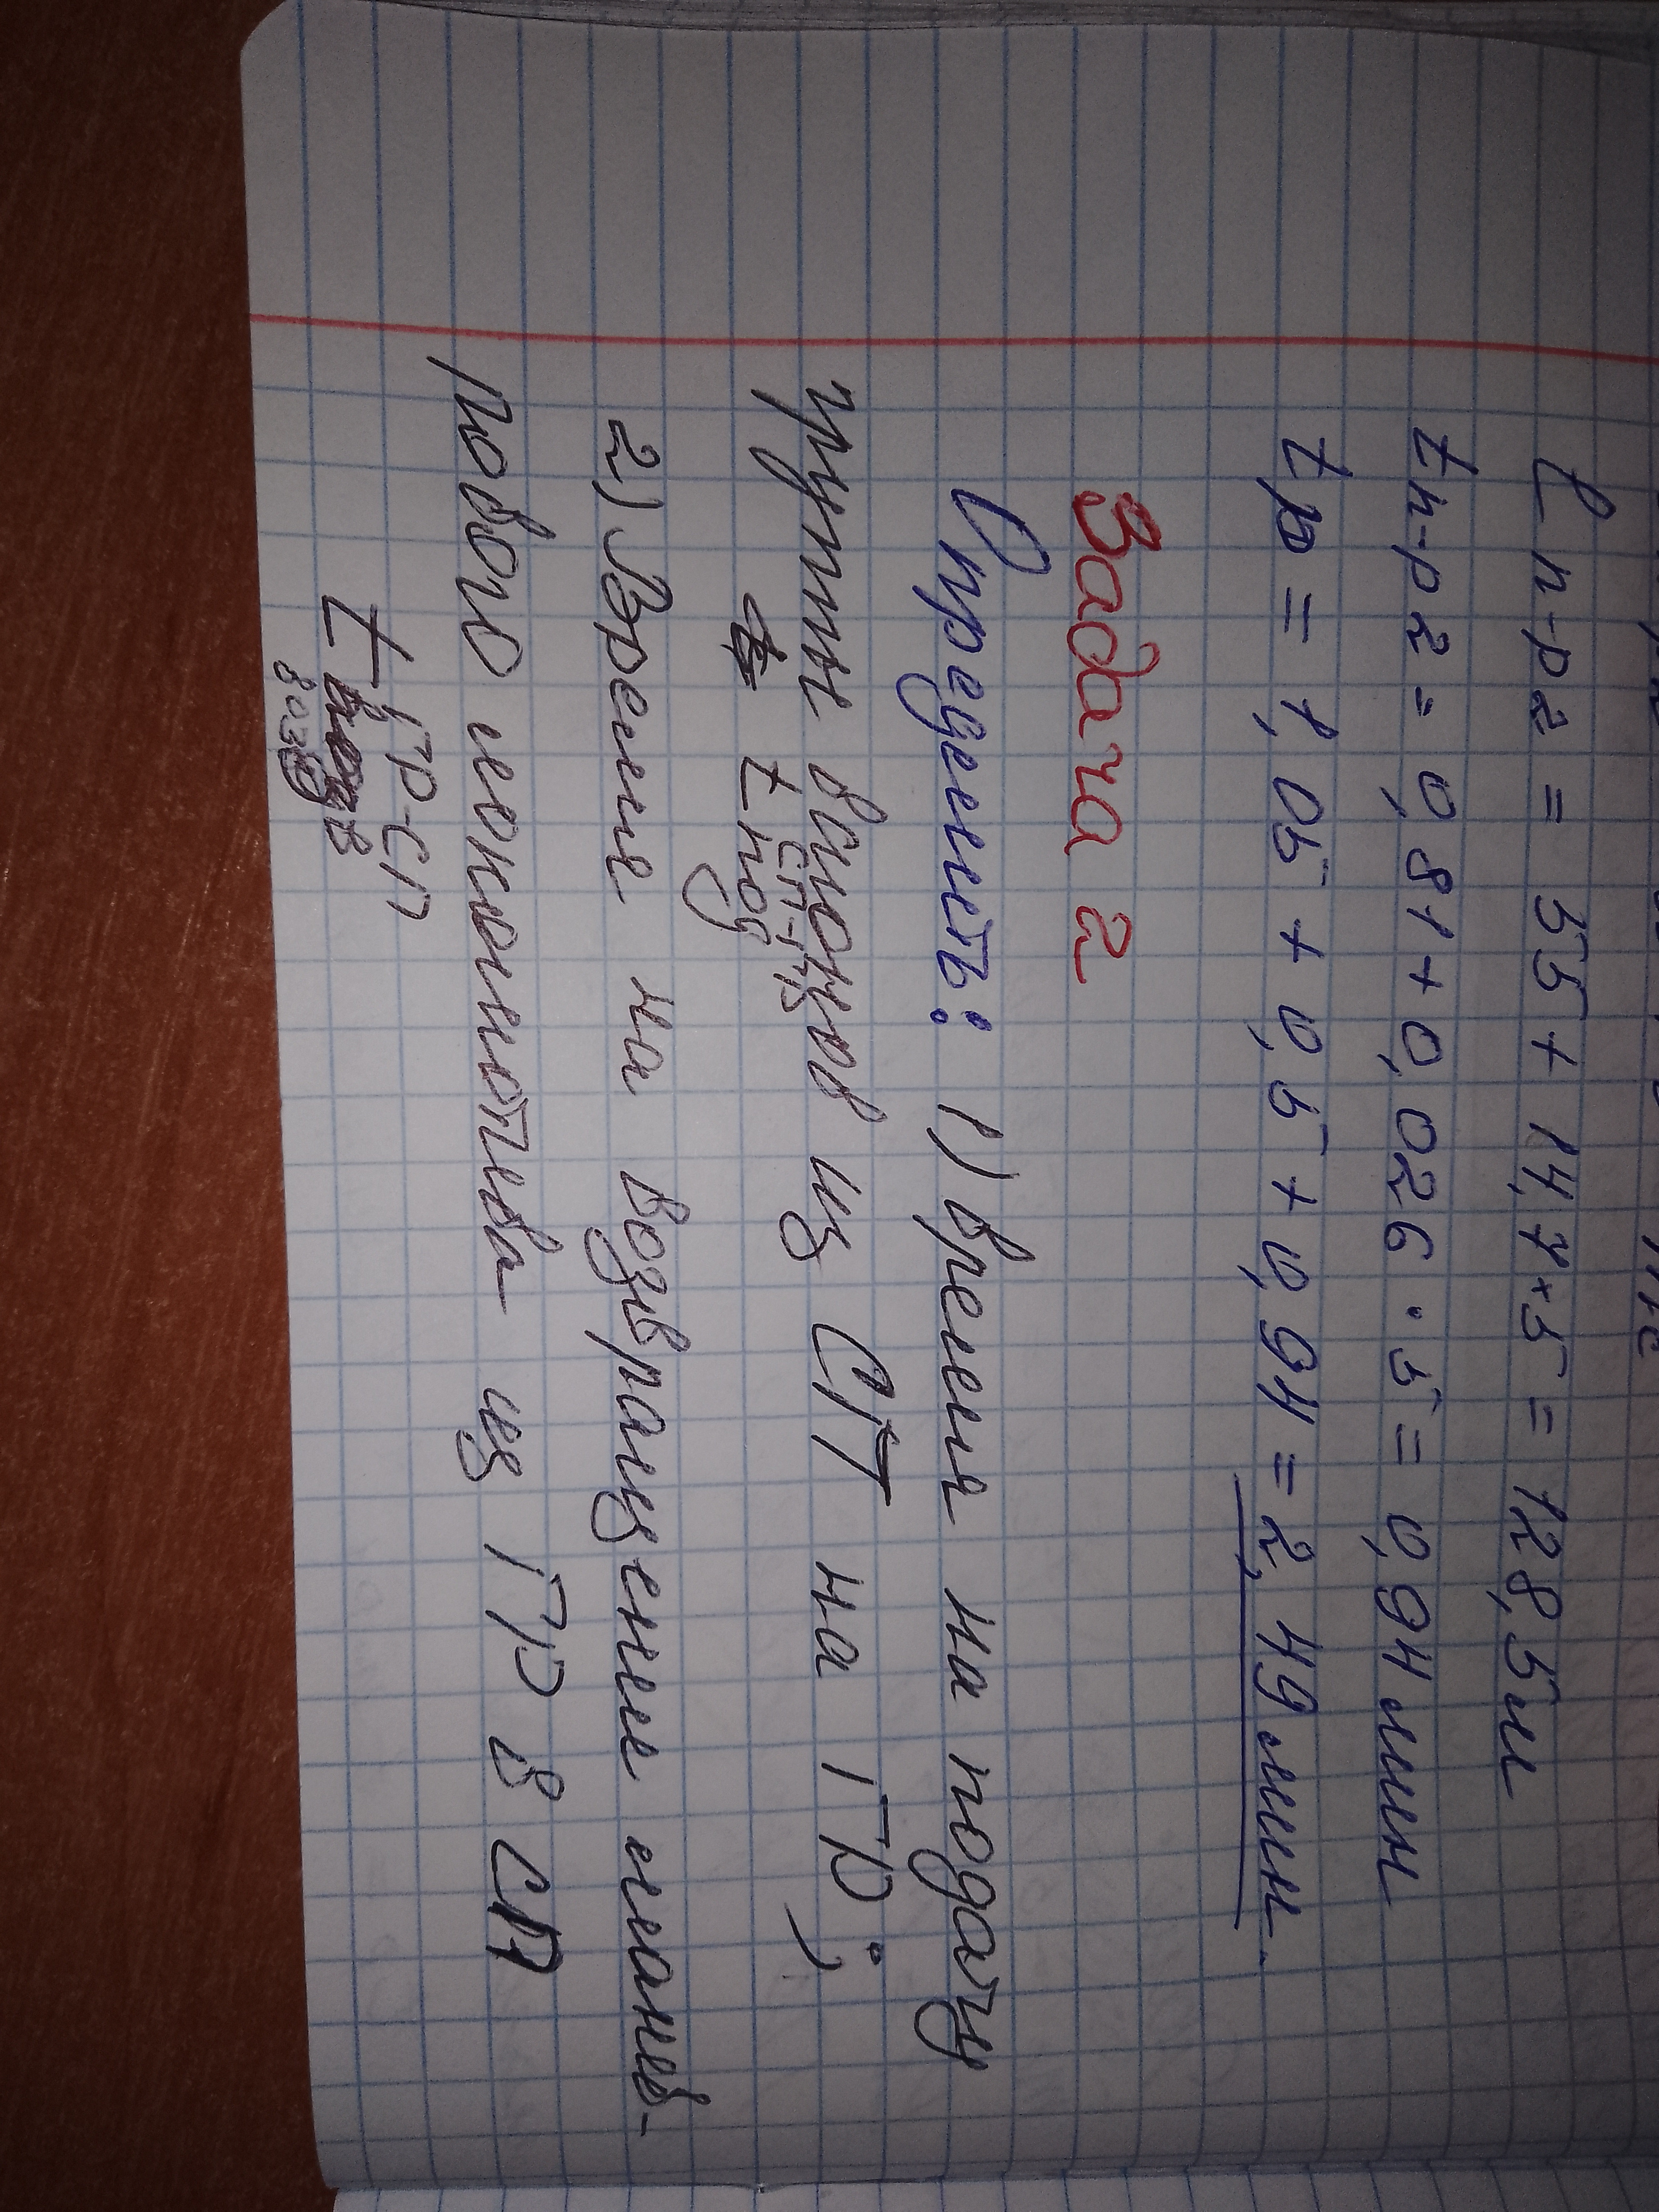 ℓп-р2 = 55 + 14,7×5 = 128,5м
tп-р2 = 0,81 + 0,026 · 5 = 0,94 мин
tр = 1,05 + 0,5 + 0,94 = 2,49 мин.
Задача 2
Определить: 1) время на подачу
группы вагонов из СП на ГР;
t под СП-ГР
2) Время на возвращение манев-
рового локомотива из ГР в СП
t возв ГР-СП